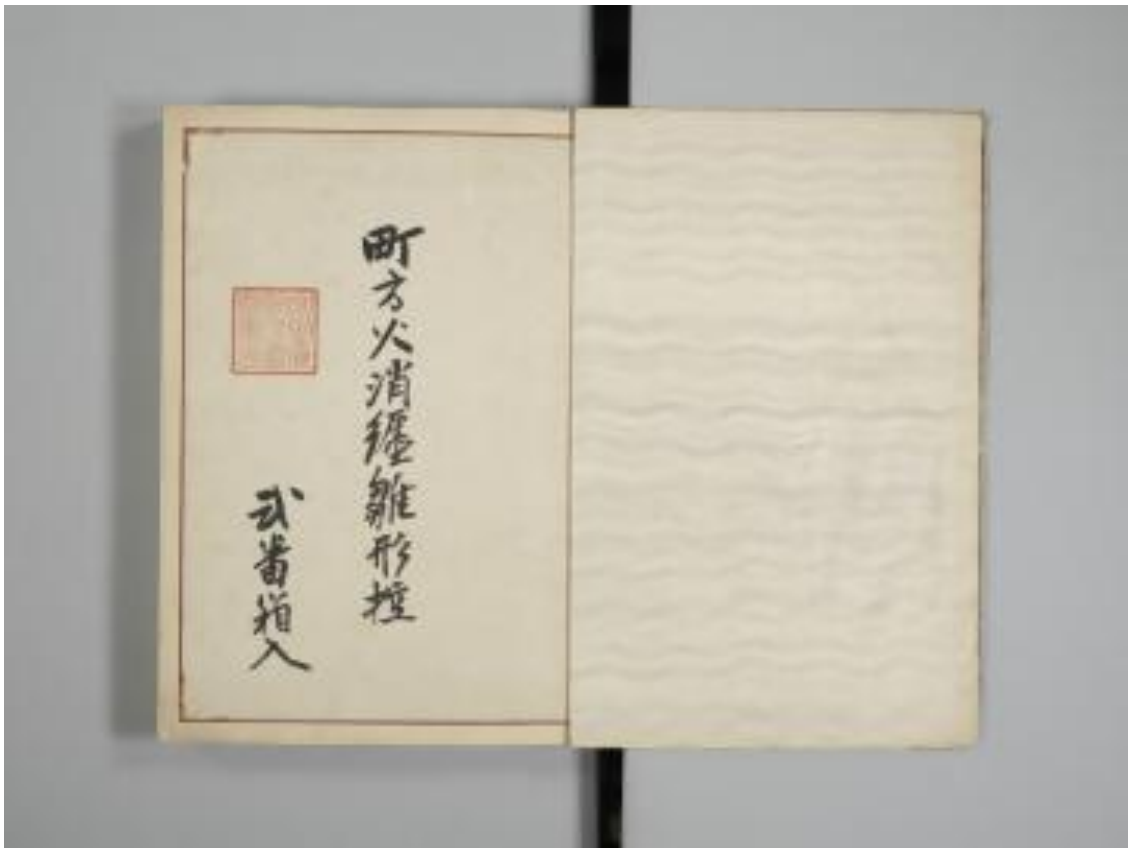 町方火消纏雛形控
弐番箱入